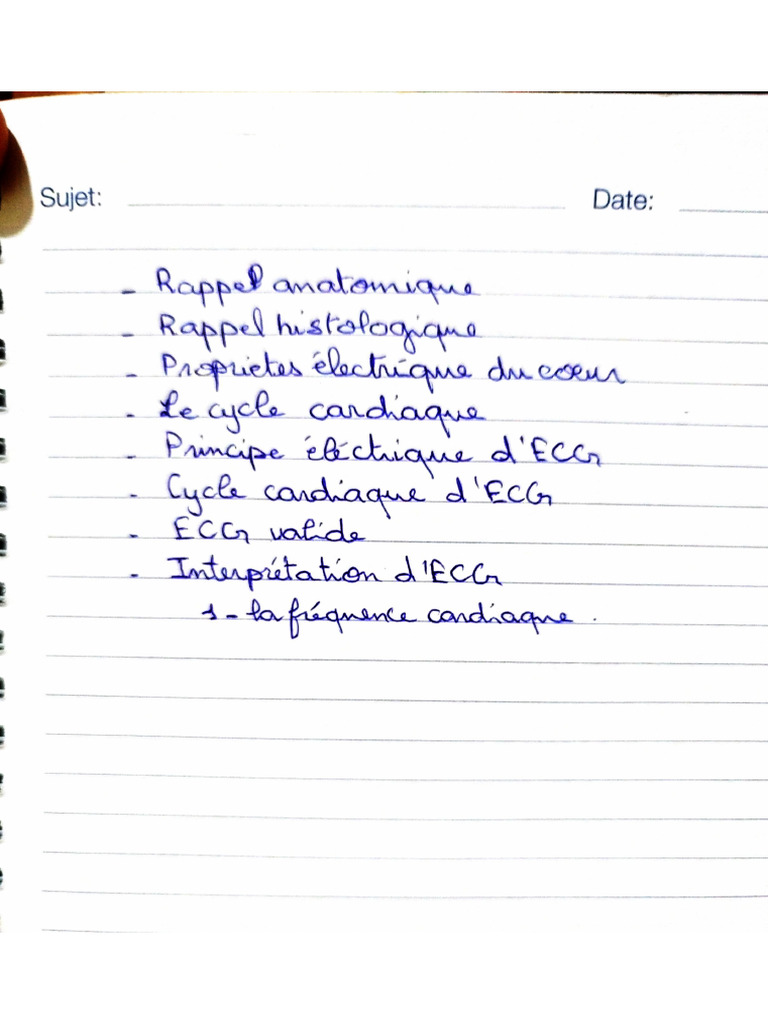 Sujet: Date:
- Rappel anatomique
- Rappel histologique
- Proprietés électrique du coeur
- Le cycle cardiaque
- Principe éléctrique d'ECG
- Cycle cardiaque d'ECG
- ECG valide
- Interprétation d'ECG
1 - la fréquence cardiaque.